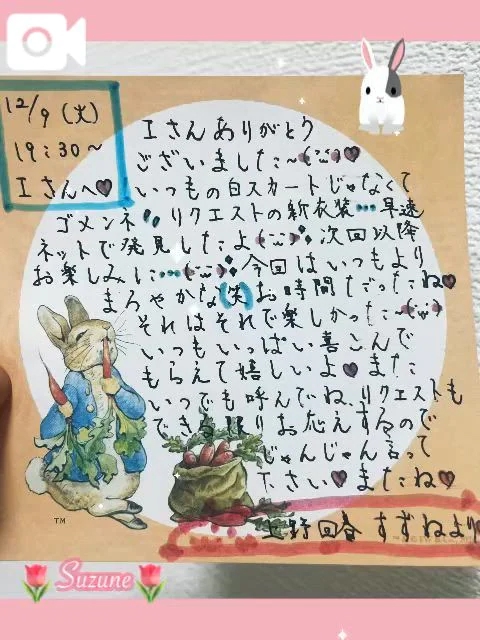 12/9 (火)
19:30~
Iさんへ♥
Iさんありがとう
ございました~♥
いつもの白スカートじゃなくて
ゴメンネ リクエストの新衣装…早速
ネットで発見したよ 次回以降
お楽しみに… 今回はいつもより
まろやかな(笑)お時間だったね♥
それはそれで楽しかった~
いつもいっぱい喜こんで
もらえて嬉しいよ♥また
いつでも呼んでね、リクエストも
できる限りお応えするので
じゃんじゃん言って
下さい♥またね♥
上野回春 すずねより
TM
Suzune